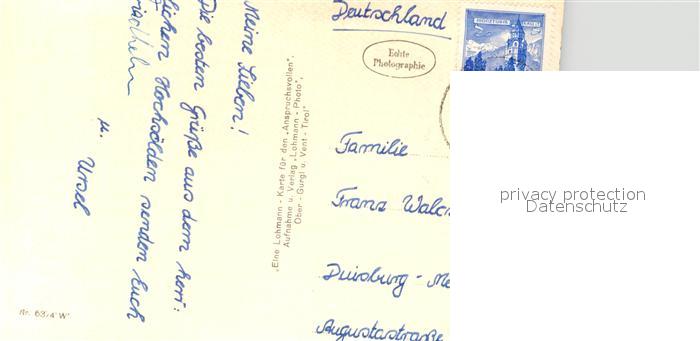 Meine Lieben!
Die besten Grüße aus dem herr-
lichen Hochsölden senden Euch
Friedhelm
u. Ursel
Nr. 63/4"W"
"Eine Lohmann - Karte für den "Anspruchsvollen",
Aufnahme u. Verlag "Lohmann - Photo",
Ober - Gurgl u. Vent - Tirol"
Deutschland
Echte
Photographie
Familie
Franz
Duisburg - Me
Augustastraße
privacy protection
Datenschutz